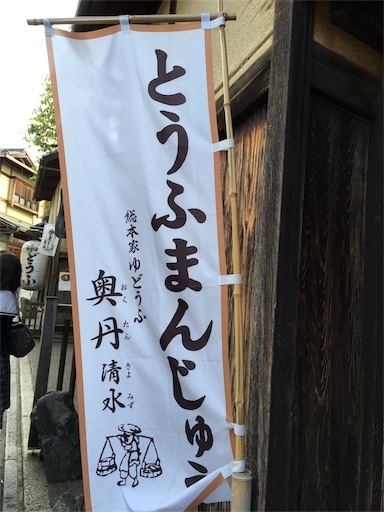 とうふまんじゅう
総本家ゆどうふ
奥丹清水
おくたんきよみず
とうふ